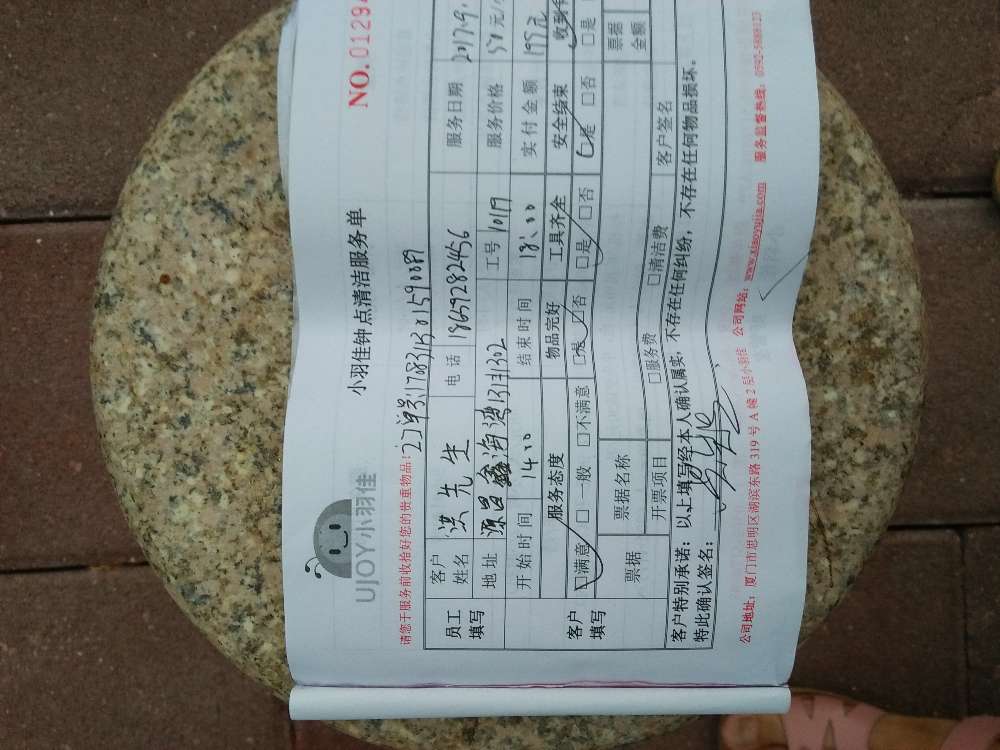 UJOY小羽佳
小羽佳钟点清洁服务单
NO.01294
请您于服务前收拾好您的贵重物品!
员工填写 客户姓名 洪先生 电话 18659282456 服务日期 2017.9.
地址 源昌鑫海湾 工号 服务价格 50元/
开始时间 14:00 结束时间 18:00 实付金额 195元
客户填写 服务态度 物品完好 工具齐全 安全结束
□满意 □一般 □不满意 □是 □否 □是 □否 □是 □否 □是
票据 票据名称 票据金额
开票项目 □服务费 □清洁费 客户签名
客户特别承诺: 以上填写经本人确认属实,不存在任何纠纷,不存在任何物品损坏。
特此确认签名:
公司地址:厦门市思明区湖滨东路319号A幢2层小羽佳 公司网站:www.xiaoyujia.com 服务监督热线:0592-